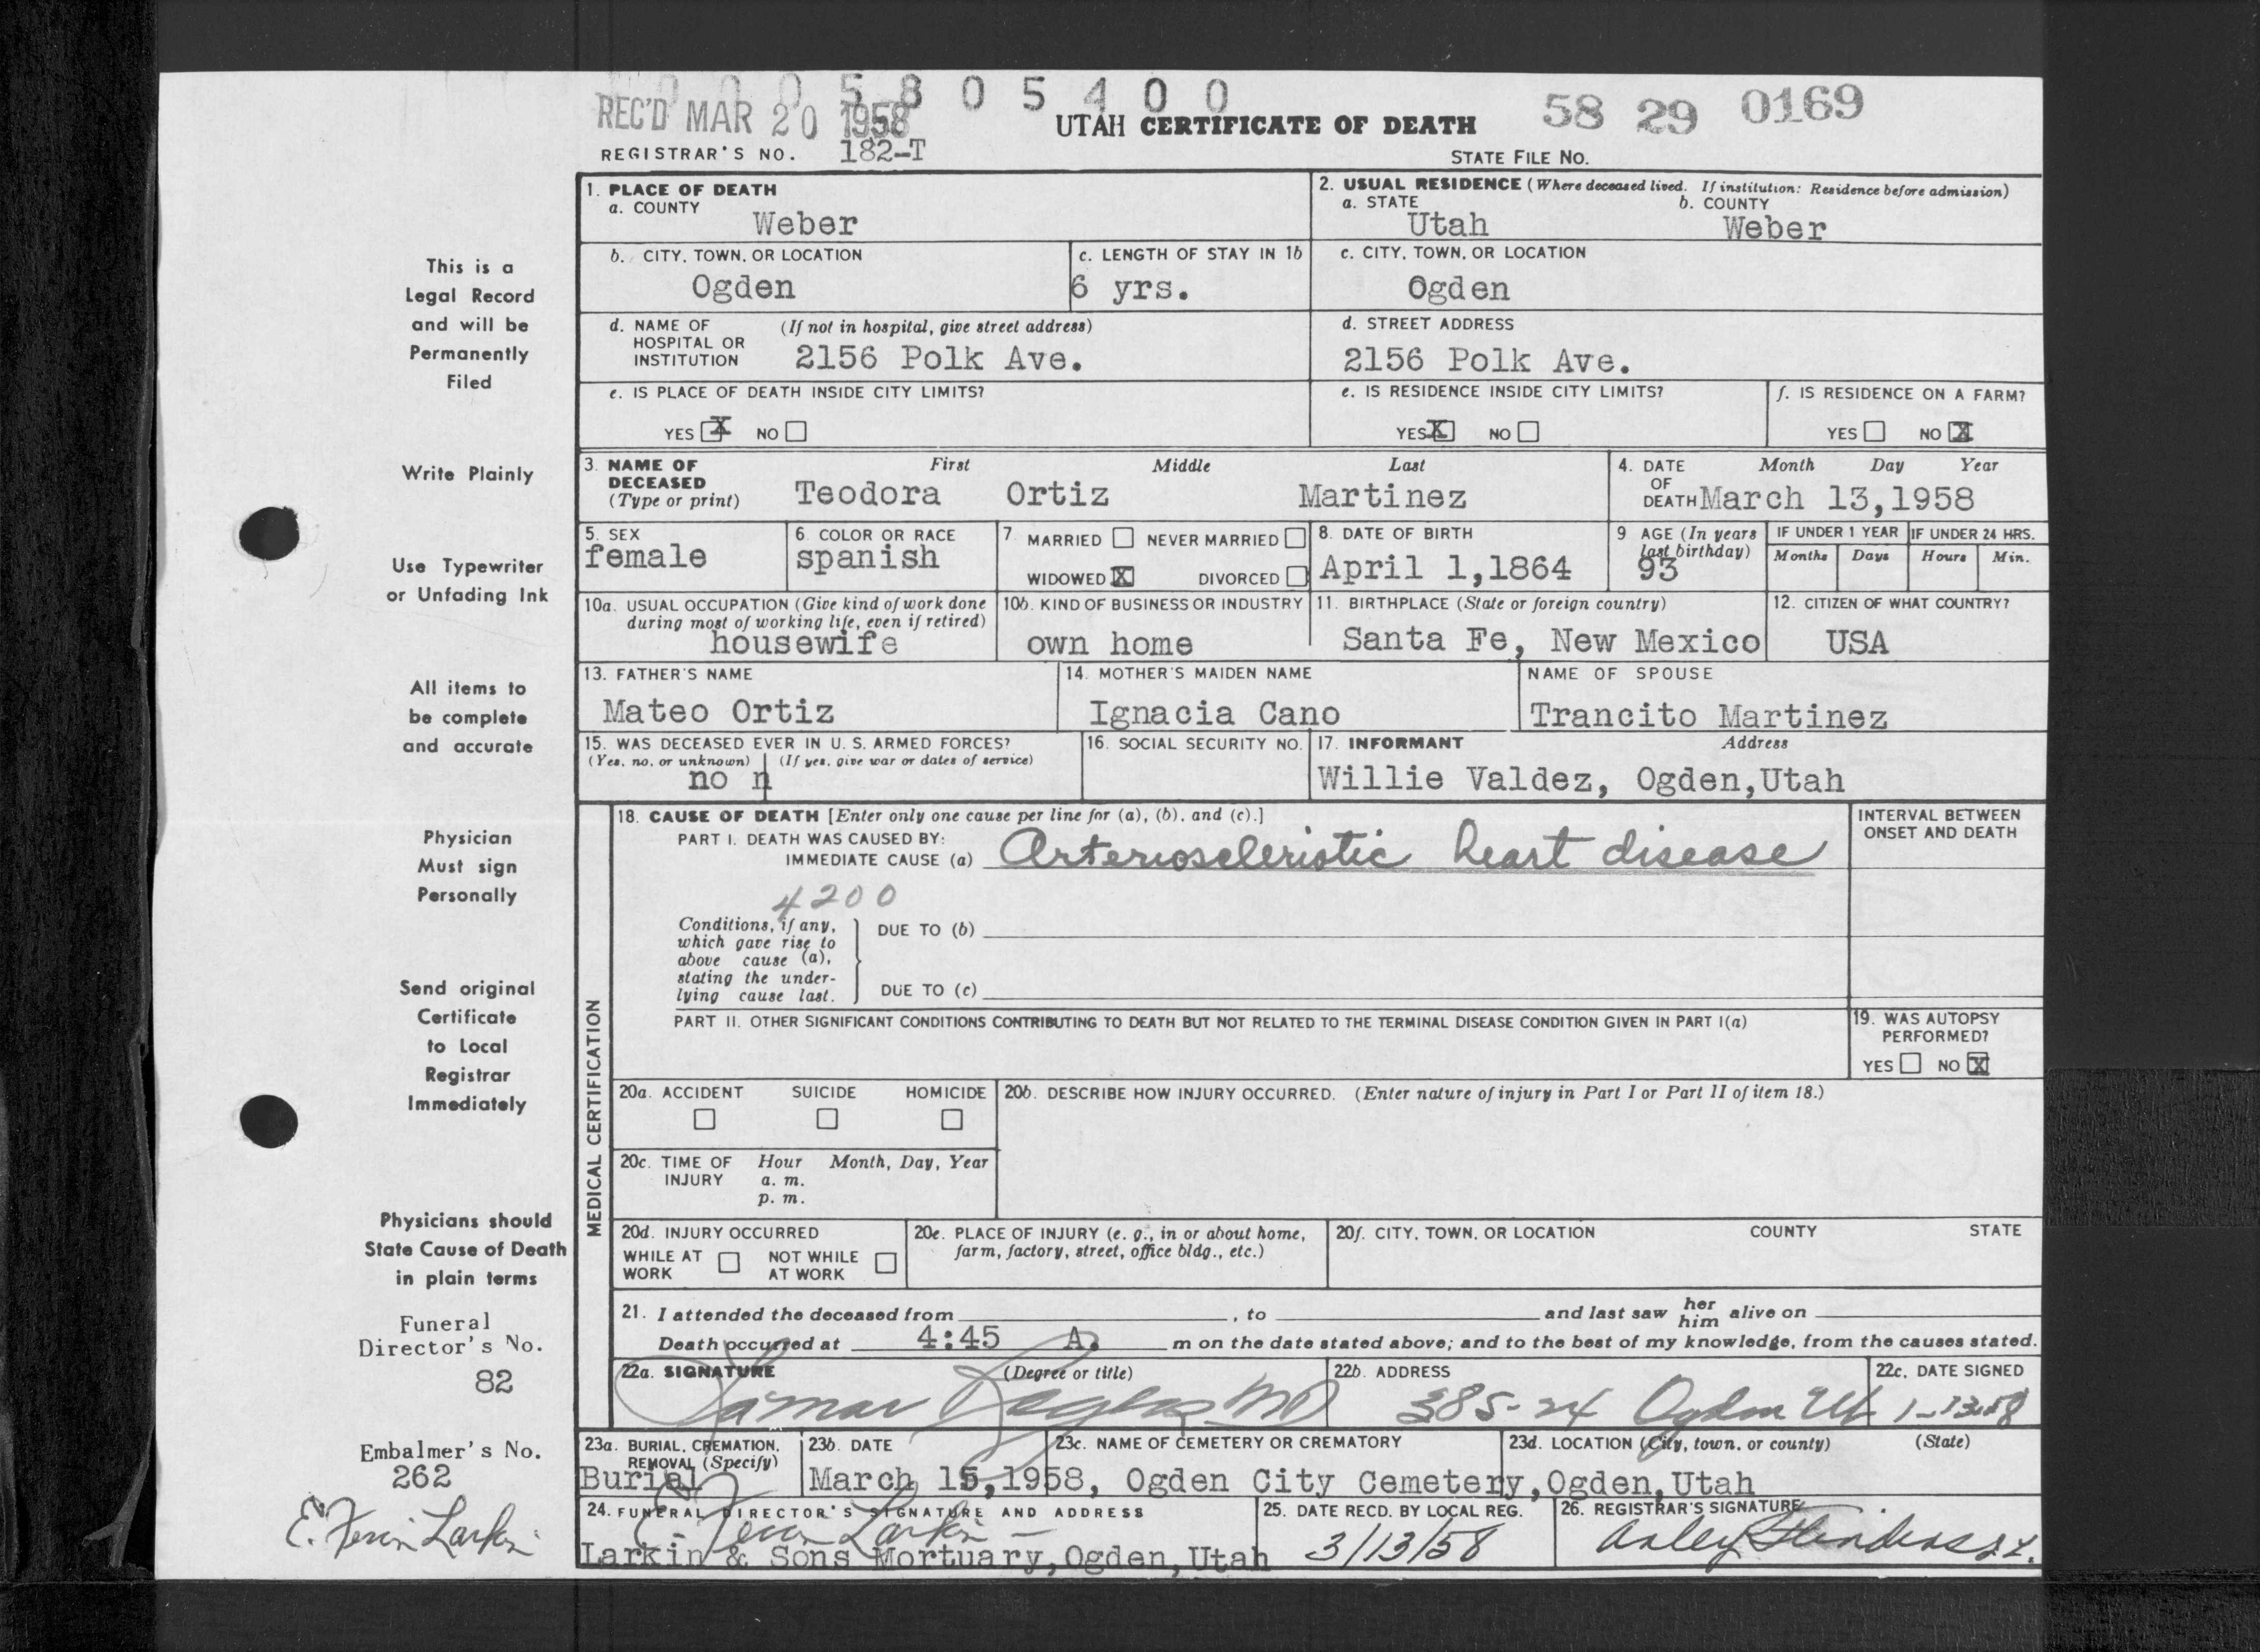 0 0 0 5 8 0 5 4 0 0
REC'D MAR 20 1958
UTAH CERTIFICATE OF DEATH
58 29 0169
REGISTRAR'S NO. 182-T
STATE FILE NO.
1. PLACE OF DEATH
a. COUNTY
Weber
2. USUAL RESIDENCE (Where deceased lived. If institution: Residence before admission)
a. STATE
Utah
b. COUNTY
Weber
b. CITY, TOWN, OR LOCATION
Ogden
c. LENGTH OF STAY IN 1b
6 yrs.
c. CITY, TOWN, OR LOCATION
Ogden
d. NAME OF HOSPITAL OR INSTITUTION
(If not in hospital, give street address)
2156 Polk Ave.
d. STREET ADDRESS
2156 Polk Ave.
e. IS PLACE OF DEATH INSIDE CITY LIMITS?
YES X NO
e. IS RESIDENCE INSIDE CITY LIMITS?
YES X NO
f. IS RESIDENCE ON A FARM?
YES NO X
3. NAME OF DECEASED
(Type or print)
First Middle Last
Teodora Ortiz Martinez
4. DATE OF DEATH
Month Day Year
March 13,1958
5. SEX
female
6. COLOR OR RACE
spanish
7. MARRIED NEVER MARRIED
WIDOWED X DIVORCED
8. DATE OF BIRTH
April 1,1864
9 AGE (In years last birthday)
93
IF UNDER 1 YEAR
Months Days
IF UNDER 24 HRS.
Hours Min.
10a. USUAL OCCUPATION (Give kind of work done during most of working life, even if retired)
housewife
10b. KIND OF BUSINESS OR INDUSTRY
own home
11. BIRTHPLACE (State or foreign country)
Santa Fe, New Mexico
12. CITIZEN OF WHAT COUNTRY?
USA
13. FATHER'S NAME
Mateo Ortiz
14. MOTHER'S MAIDEN NAME
Ignacia Cano
NAME OF SPOUSE
Trancito Martinez
15. WAS DECEASED EVER IN U. S. ARMED FORCES?
(Yes, no, or unknown) (If yes, give war or dates of service)
no n
16. SOCIAL SECURITY NO.
17. INFORMANT Address
Willie Valdez, Ogden,Utah
MEDICAL CERTIFICATION
18. CAUSE OF DEATH [Enter only one cause per line for (a), (b), and (c).]
PART I. DEATH WAS CAUSED BY:
IMMEDIATE CAUSE (a) Arterioscleriotic heart disease
INTERVAL BETWEEN ONSET AND DEATH
4200
Conditions, if any, which gave rise to above cause (a), stating the underlying cause last.
DUE TO (b)
DUE TO (c)
PART II. OTHER SIGNIFICANT CONDITIONS CONTRIBUTING TO DEATH BUT NOT RELATED TO THE TERMINAL DISEASE CONDITION GIVEN IN PART I(a)
19. WAS AUTOPSY PERFORMED?
YES NO X
20a. ACCIDENT SUICIDE HOMICIDE
20b. DESCRIBE HOW INJURY OCCURRED. (Enter nature of injury in Part I or Part II of item 18.)
20c. TIME OF INJURY
Hour Month, Day, Year
a. m.
p. m.
20d. INJURY OCCURRED
WHILE AT WORK NOT WHILE AT WORK
20e. PLACE OF INJURY (e. g., in or about home, farm, factory, street, office bldg., etc.)
20f. CITY, TOWN, OR LOCATION COUNTY STATE
21. I attended the deceased from , to and last saw her him alive on
Death occurred at 4:45 A. m on the date stated above; and to the best of my knowledge, from the causes stated.
22a. SIGNATURE (Degree or title)
MD
22b. ADDRESS
385-24 Ogden Ut
22c. DATE SIGNED
23a. BURIAL, CREMATION, REMOVAL (Specify)
Burial
23b. DATE
March 15,1958,
23c. NAME OF CEMETERY OR CREMATORY
Ogden City Cemetery,
23d. LOCATION (City, town, or county) (State)
Ogden,Utah
24. FUNERAL DIRECTOR'S SIGNATURE AND ADDRESS
E. Fervin Larkin
Larkin & Sons Mortuary,Ogden,Utah
25. DATE RECD. BY LOCAL REG.
3/13/58
26. REGISTRAR'S SIGNATURE
This is a
Legal Record
and will be
Permanently
Filed
Write Plainly
Use Typewriter
or Unfading Ink
All items to
be complete
and accurate
Physician
Must sign
Personally
Send original
Certificate
to Local
Registrar
Immediately
Physicians should
State Cause of Death
in plain terms
Funeral
Director's No.
82
Embalmer's No.
262
E. Fervin Larkin